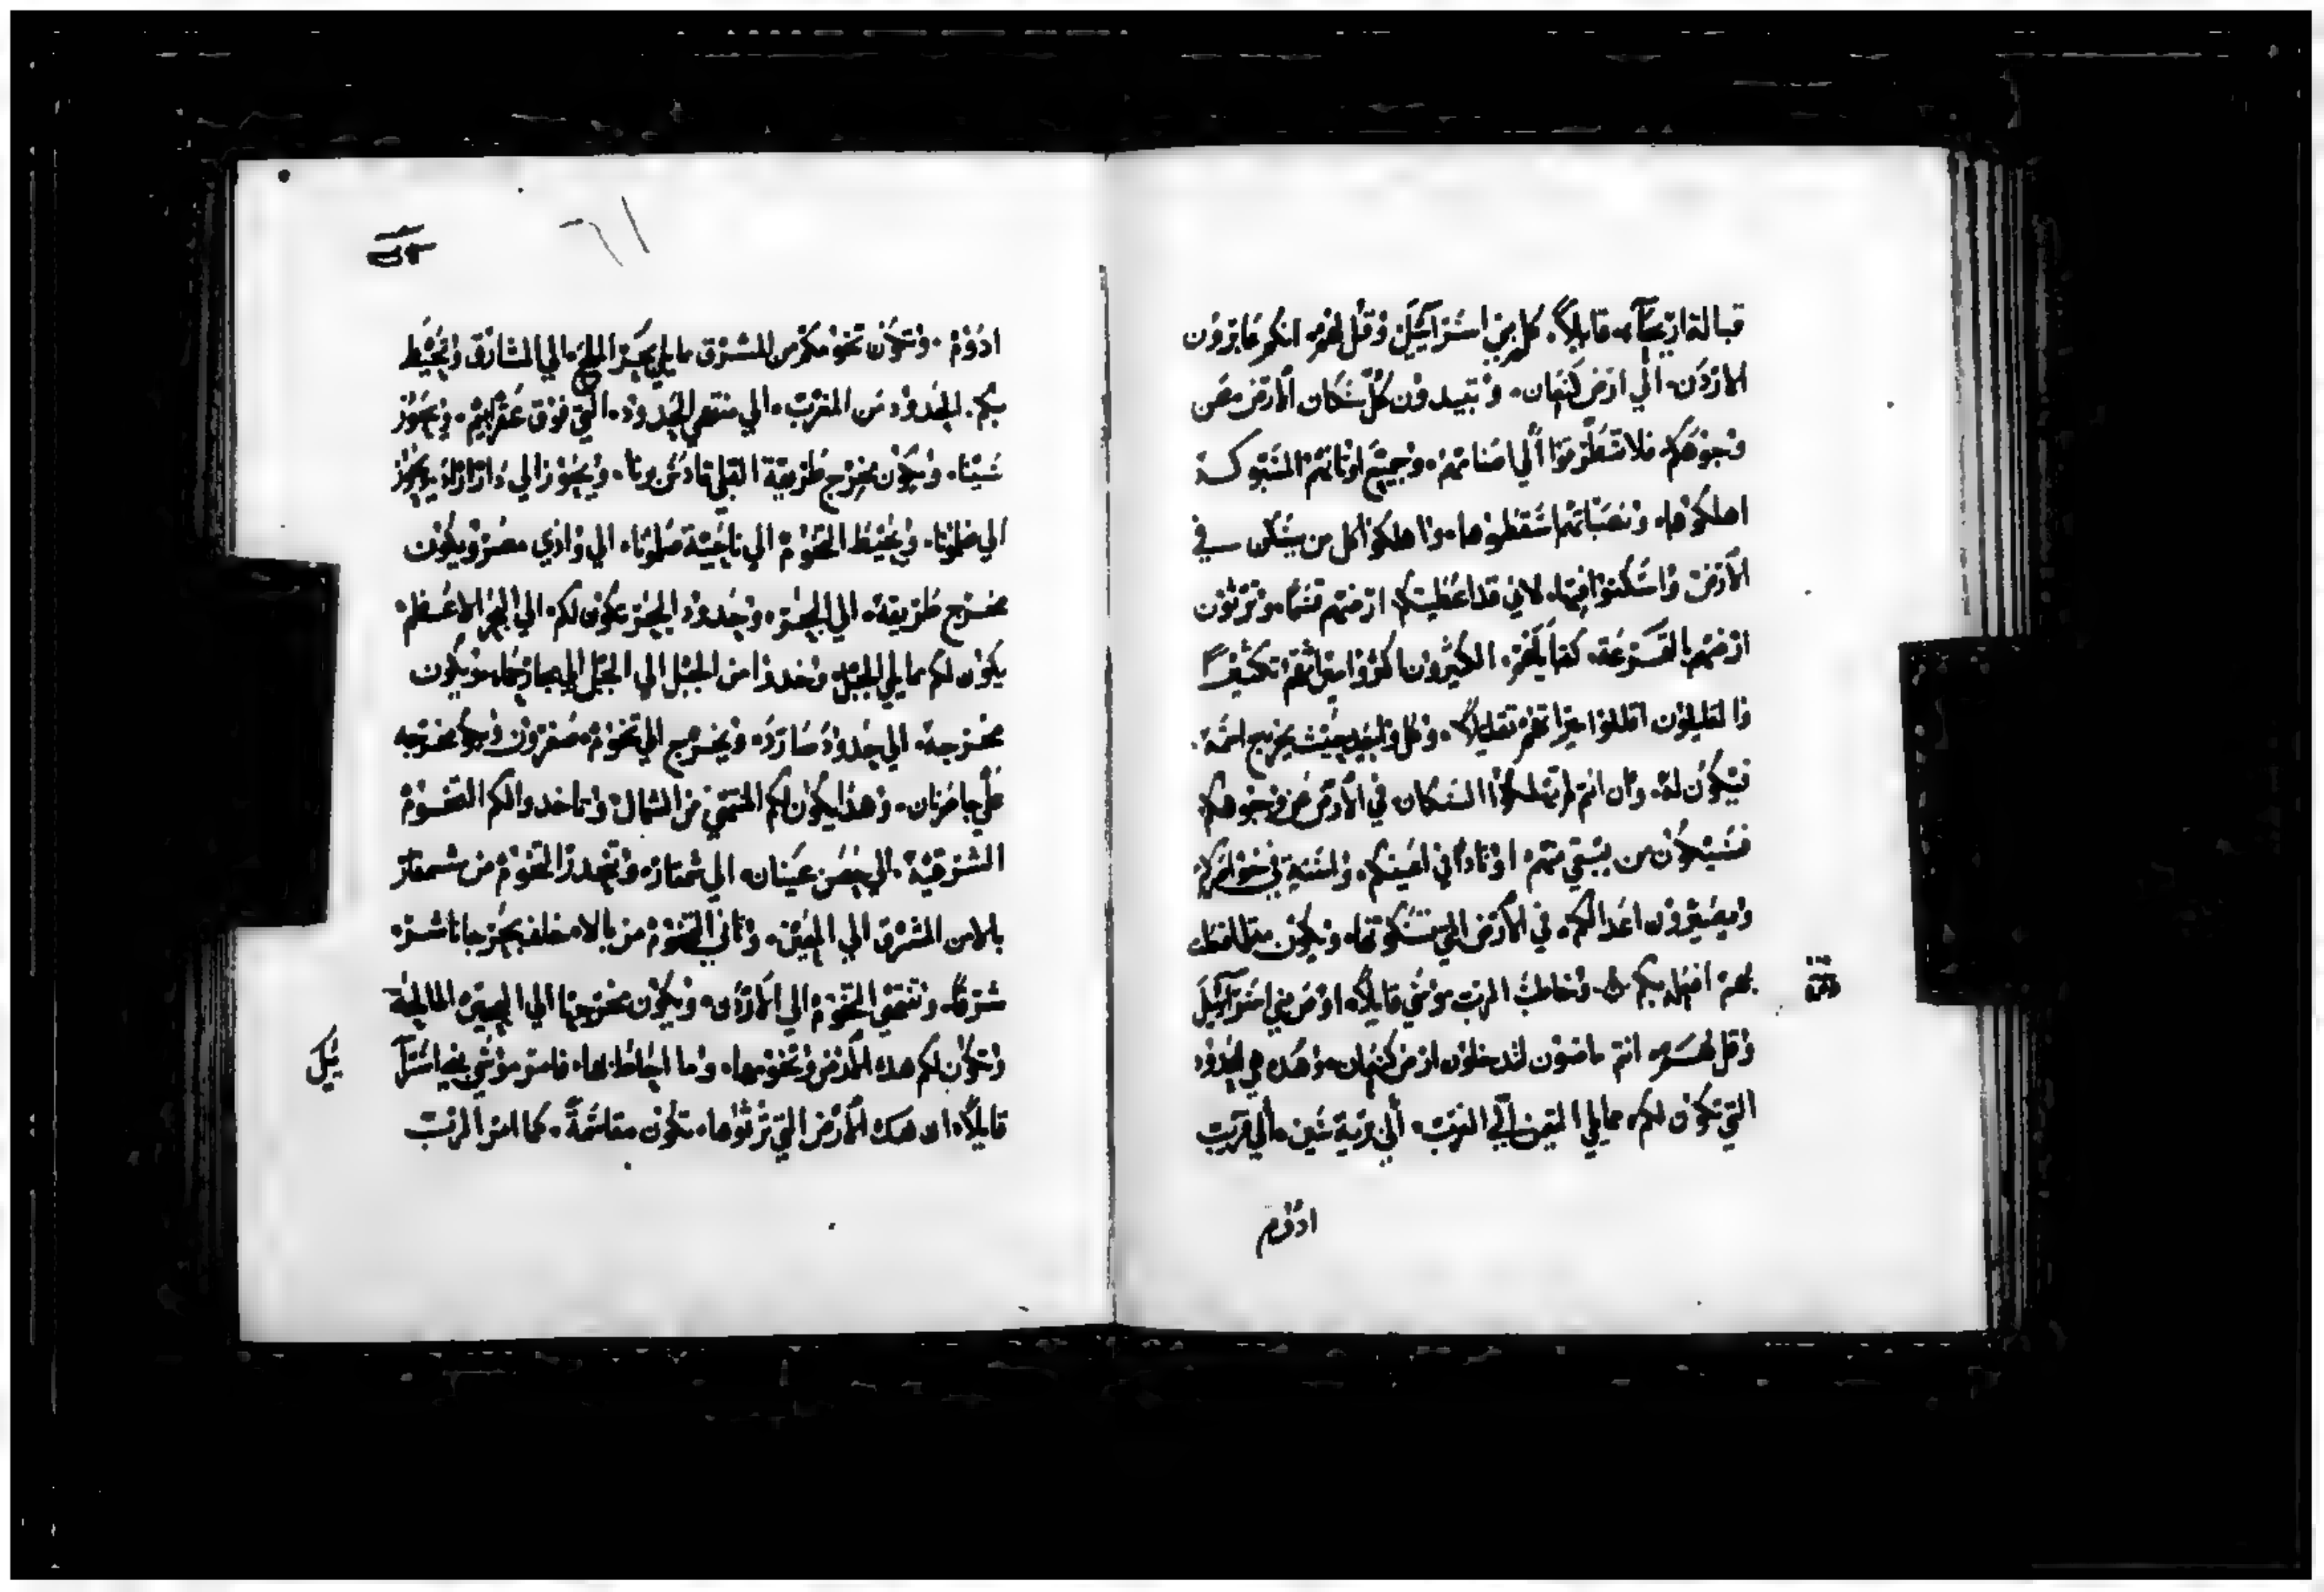 قبالة اريحا، قايلاً. كلم بني اسرائيل وقل لهم، انكم عابرون
الاردن، الي ارض كنعان، وتبيدون كل سكان الارض من
وجوهكم، فلا الي اصنامهم، وجميع اوثانهم المسبوكة
اهلكوها، ونصباتهم اسقطوها، واهلكوا كل من يسكن في
الارض واسكنوا فيها، لاني قد اعطيتكم ارضهم قسماً، وترثون
ارضهم بالقرعة، كقبايلهم، الكثيرون اكثروا ميراثهم تكثيراً
والقليلون اقللوا ميراثهم تقليلاً، وكل واحد حيث يخرج اسمه،
فيكون له، وان انتم لم تهلكوا السكان في الارض من وجوهكم
فسيكون من يبقي منهم، اوتاداً في اعينكم، واسنة في خواصركم
ويصيرون اعدا لكم، في الارض التي تسكونها، ويكون مثلما
بهم افعل بكم وخاطب الرب موسي قايلاً، اوص بني اسرائيل
وقل لهم، انتم ماضون لتدخلون ارض كنعان، وهده هي الحدود
التي تكون لكم، مما يلي التيمن الي الغرب، الي برية سين، الي قرب
ادوم
٦١
ادوم، وتكون تخومكم من المشرق مايلي بحر الملح، الي المشارق ويحيط
بكم، الحدود من المغرب، الي منتهي الحدود، التي فوق عقرابيم، ويجوز
سينا، ويكون مخرج طريقة القبلي قادس برنا، ويجوز الي داراراد، ويجوز
الي صلمونا، ويحيط التخوم الي ناحية صلمونا، الي وادي مصر ويكون
مخرج طريقة، الي البحر، وحدود البحر يكون لكم، الي البحر الاعظم
يكون لكم مما يلي الجبل، وحددوا من الجبل الي الجبل الي ويكون
مخرجه، الي حدود صارد، ويخرج الي تخوم، صفرون ويكون مخرجه
علي حاصرنان، وهدا يكون لكم المنتهي من الشمال، وتاخدوا لكم التخوم
الشرقية، الي حصر عينان، الي شمتار، وتحدد التخوم من شمعتار
بالا من المشرق الي المعين، وتاتي التخوم من بالا، خلف بحر جاناشر،
شرقاً، وتنتهي التخوم الي الاردن، ويكون مخرجها الي البحيرة المالحة
وتكون لكم هده الارض وتخومها، وما احاط بها، فامر موسي بني اسرا
ئيل
قايلاً، ان هده الارض التي ترثوها، تكون مقاسمةً، كما امر الرب